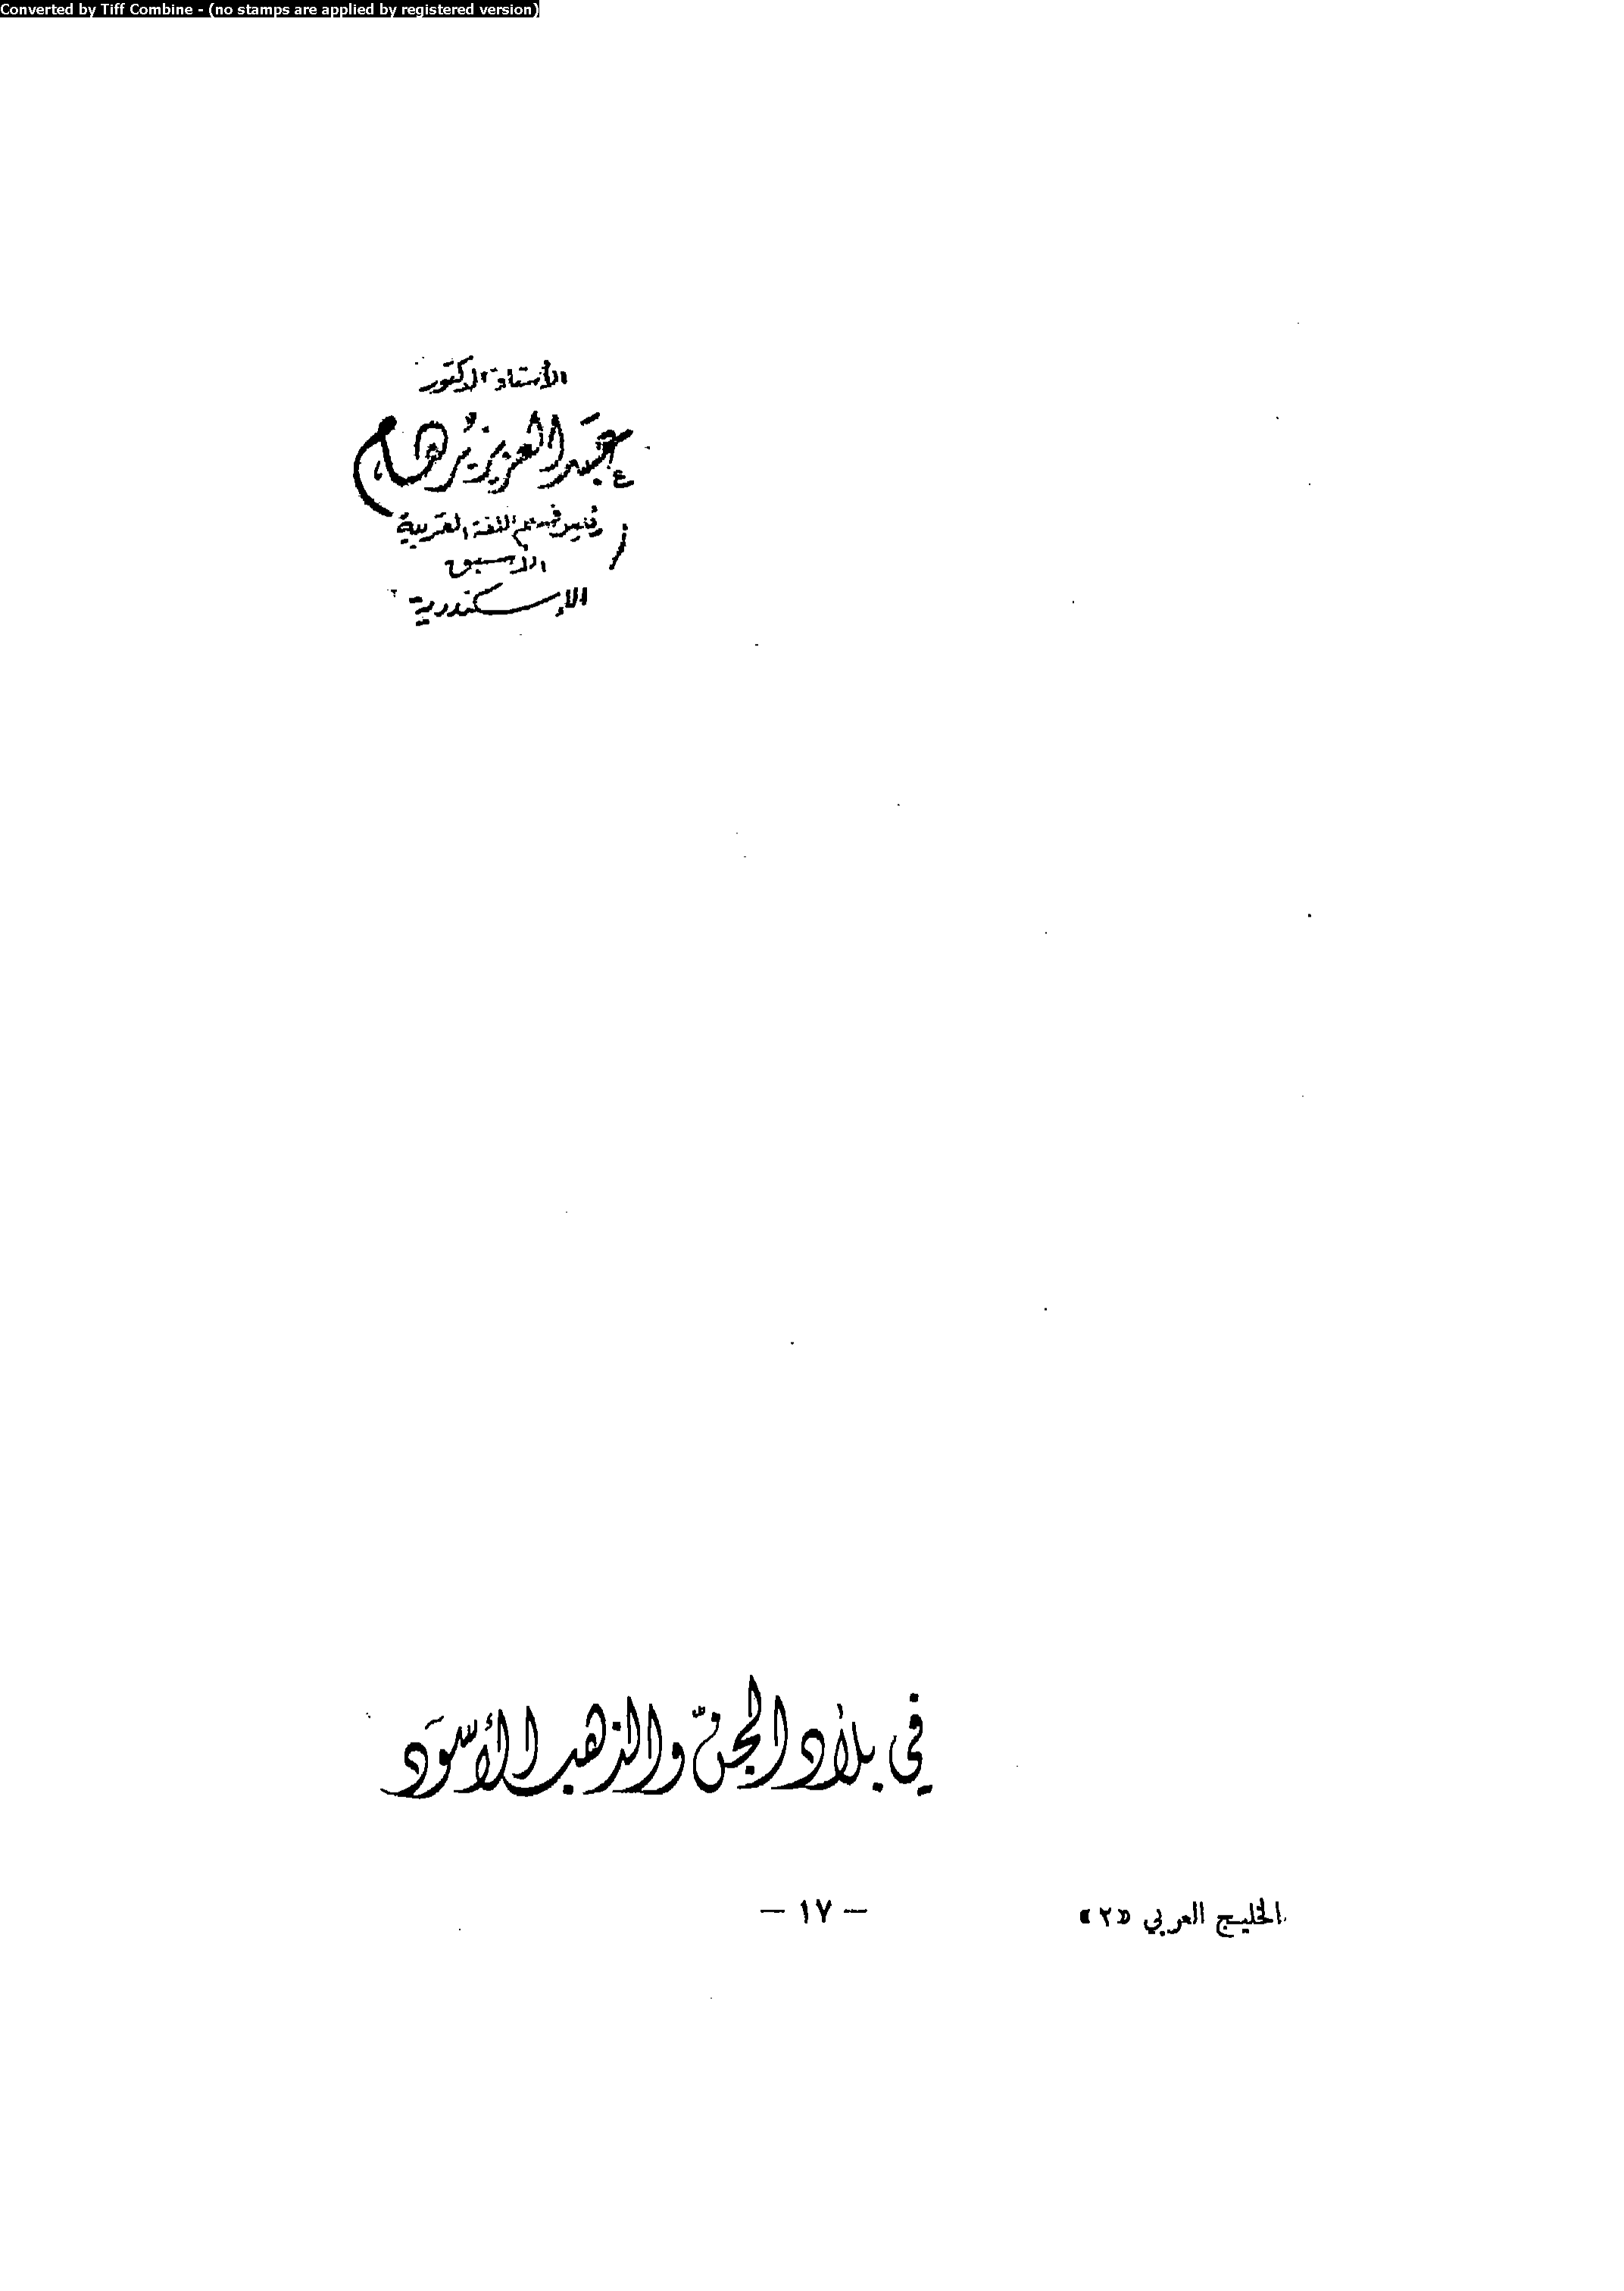 Converted by Tiff Combine - (no stamps are applied by registered version)
الأستاذ الدكتور
عبد العزيز برهام
رئيس قسم اللغة العربية
الأسبق
الإسكندرية
في بلاد الجنّ والذهب الأسوَد
الخليج العربي «٢»
— ١٧ —